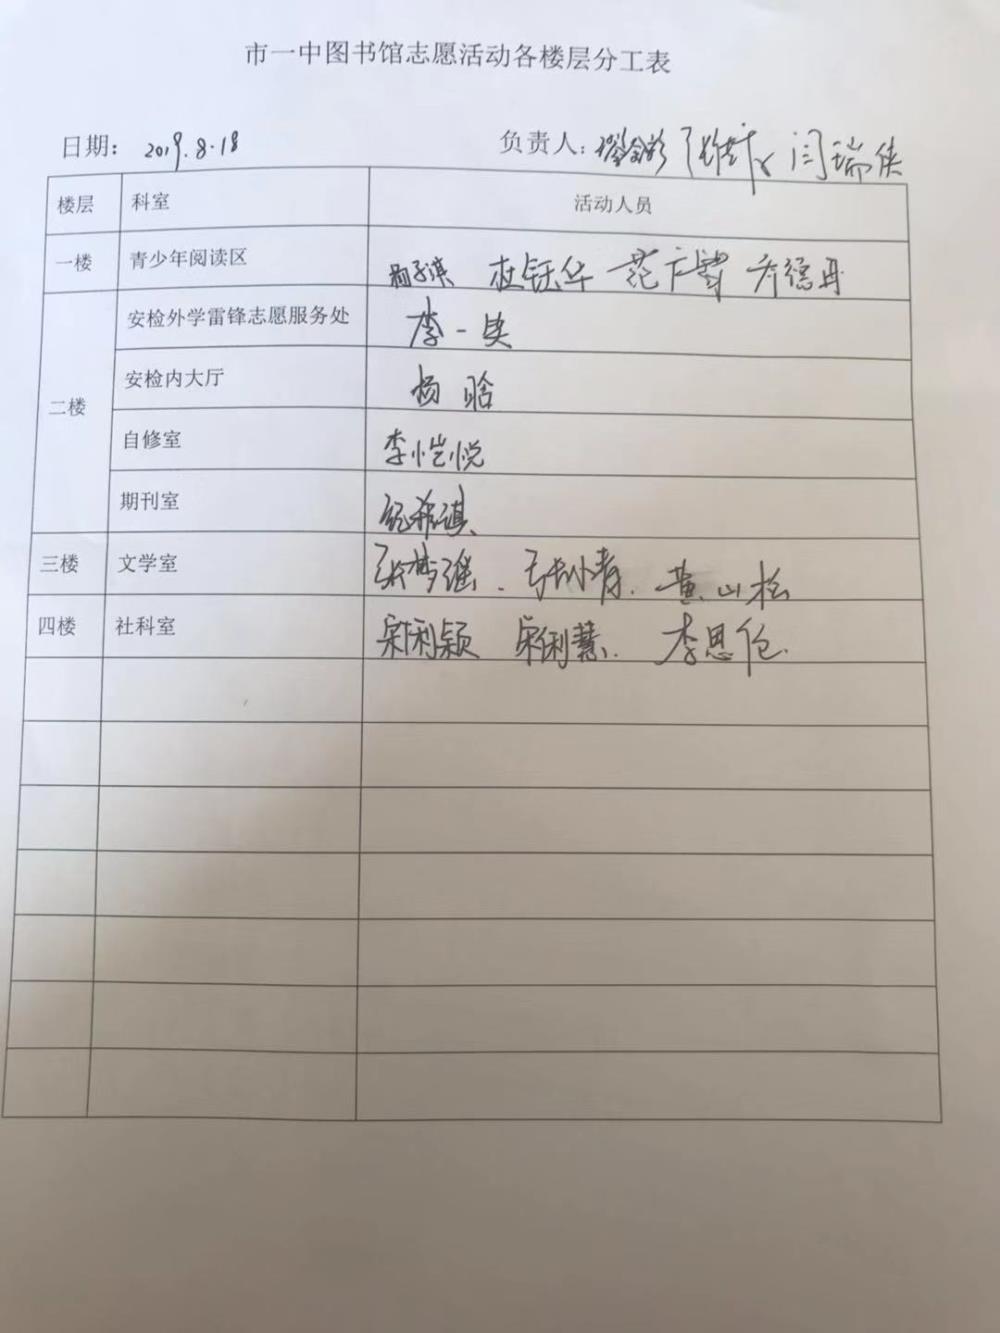 市一中图书馆志愿活动各楼层分工表
日期： 2019.8.18 负责人： 闫瑞侠
楼层 科室 活动人员
一楼 青少年阅读区 杜钰华 范广智 乔德丹
二楼
安检外学雷锋志愿服务处 李一
安检内大厅 杨晗
自修室 李恺悦
期刊室 纪希琪
三楼 文学室 张梦瑶. 张小青. 黄山松
四楼 社科室 宋利颖 宋俐慧. 李思